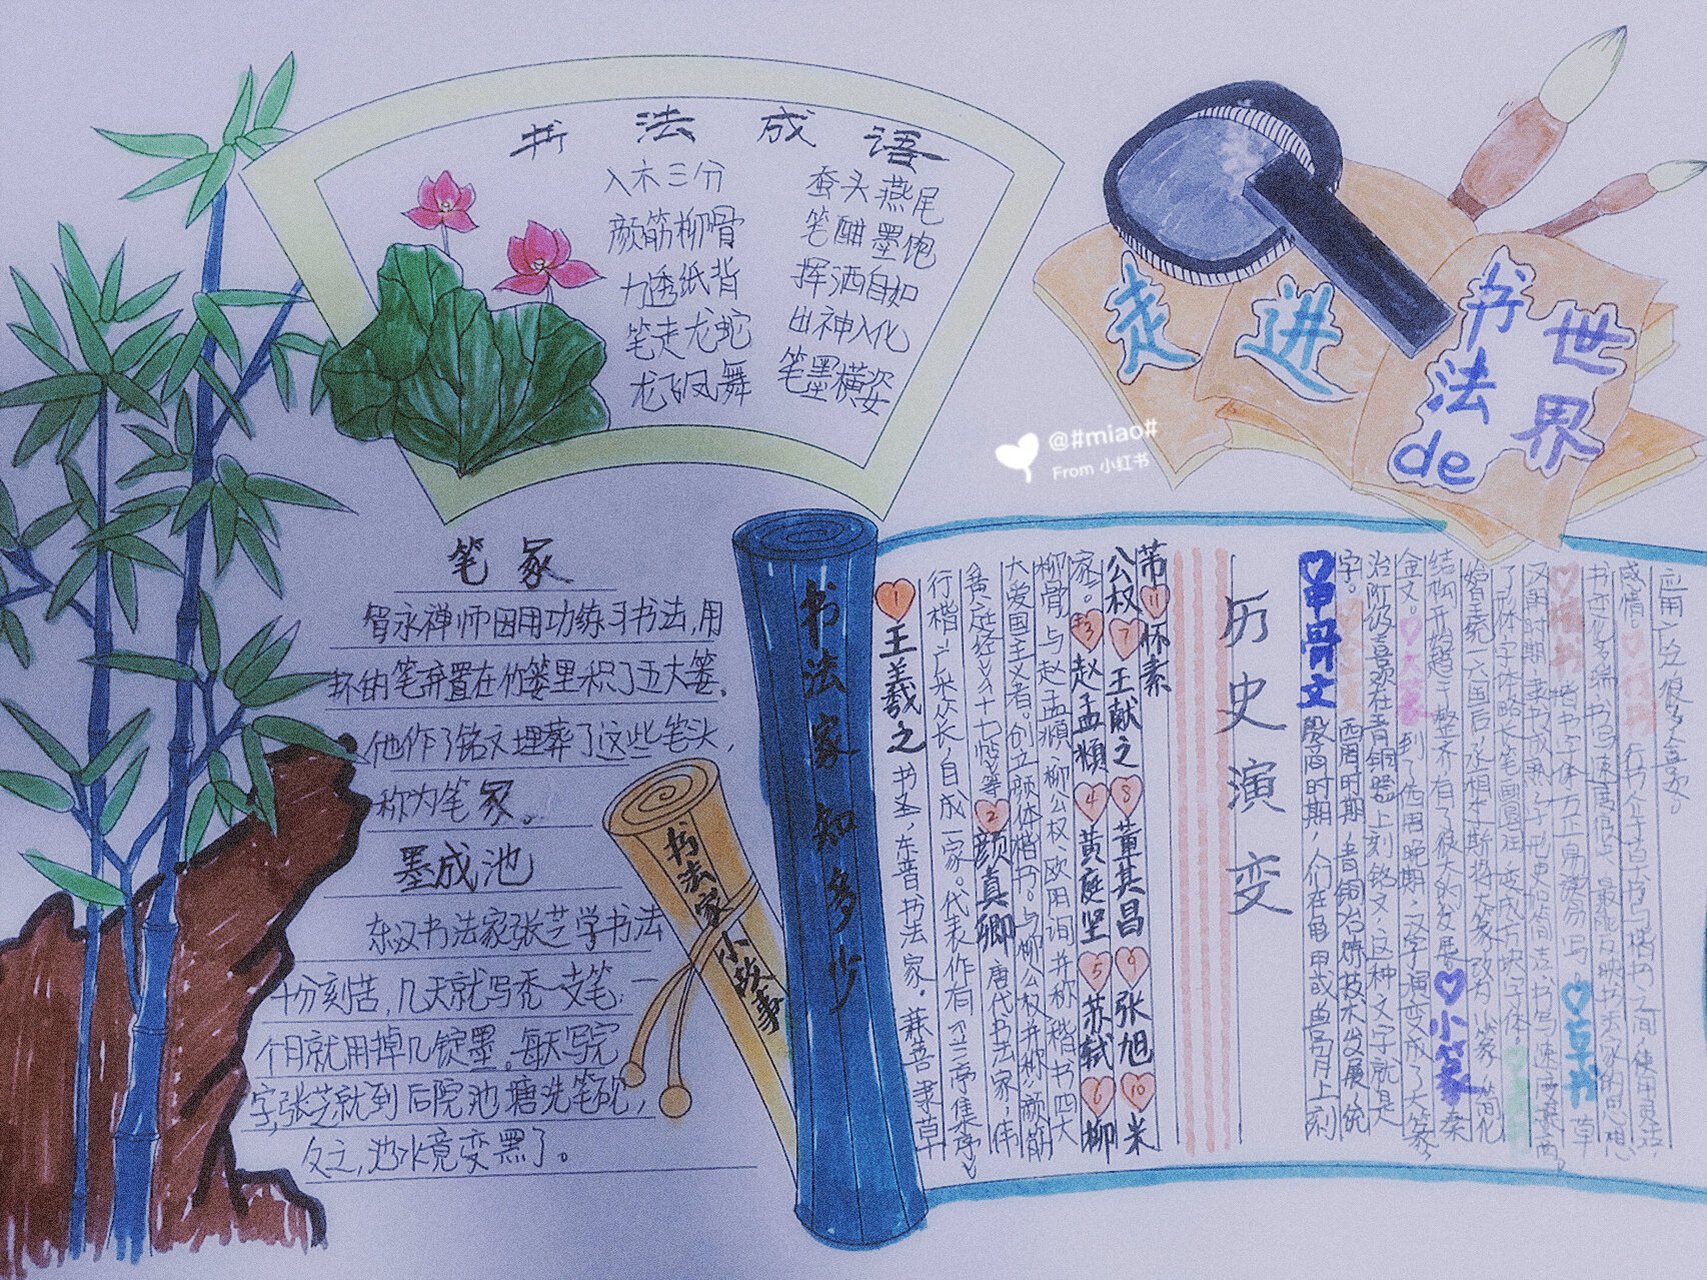 书法成语
入木三分
颜筋柳骨
力透纸背
笔走龙蛇
龙飞凤舞
蚕头燕尾
笔酣墨饱
挥洒自如
出神入化
笔墨横姿
走进
书法de
世界
@#miao#
From 小红书
笔冢
智永禅师因用功练习书法,用
坏的笔弃置在竹篓里积了五大篓,
他作了铭文埋葬了这些笔头,
称为笔冢。
墨成池
东汉书法家张芝学书法
十分刻苦,几天就写秃一支笔,一
个月就用掉几锭墨。每天写完
字,张芝就到后院池塘洗笔砚,
久之,池水竟变黑了。
书法家小故事
书法家知多少
①王羲之 书圣,东晋书法家,兼善隶草
行楷广采众长,自成一家。代表作有《兰亭集序》
黄庭经》《十七帖》等②颜真卿 唐代书法家,伟
大爱国主义者。创立颜体楷书。与柳公权并称颜筋
柳骨与赵孟頫,柳公权欧阳询并称楷书四大
家。③赵孟頫④黄庭坚⑤苏轼⑥柳
公权⑦王献之⑧董其昌⑨张旭⑩米
芾⑪怀素
历史演变
甲骨文 殷商时期,人们在龟甲或兽骨上刻
字。 西周时期,青铜冶炼技术发展,统
治阶级喜欢在青铜器上刻铭文,这种文字就是
金文。大篆 到了西周晚期,汉字演变成了大篆,
结构开始趋于整齐,有了很大的发展 小篆 秦
始皇统一六国后丞相李斯将大篆改为小篆 简化
了字体 字体略长笔画圆在变成方块字体。
汉朝时期隶书成熟
楷书字体方正易 书写 草书 草
书 书写速度很快 最能反映书法家的思想
感情。行书 行书介于草书与楷书之间,使用灵活,
应用广泛很多喜欢。